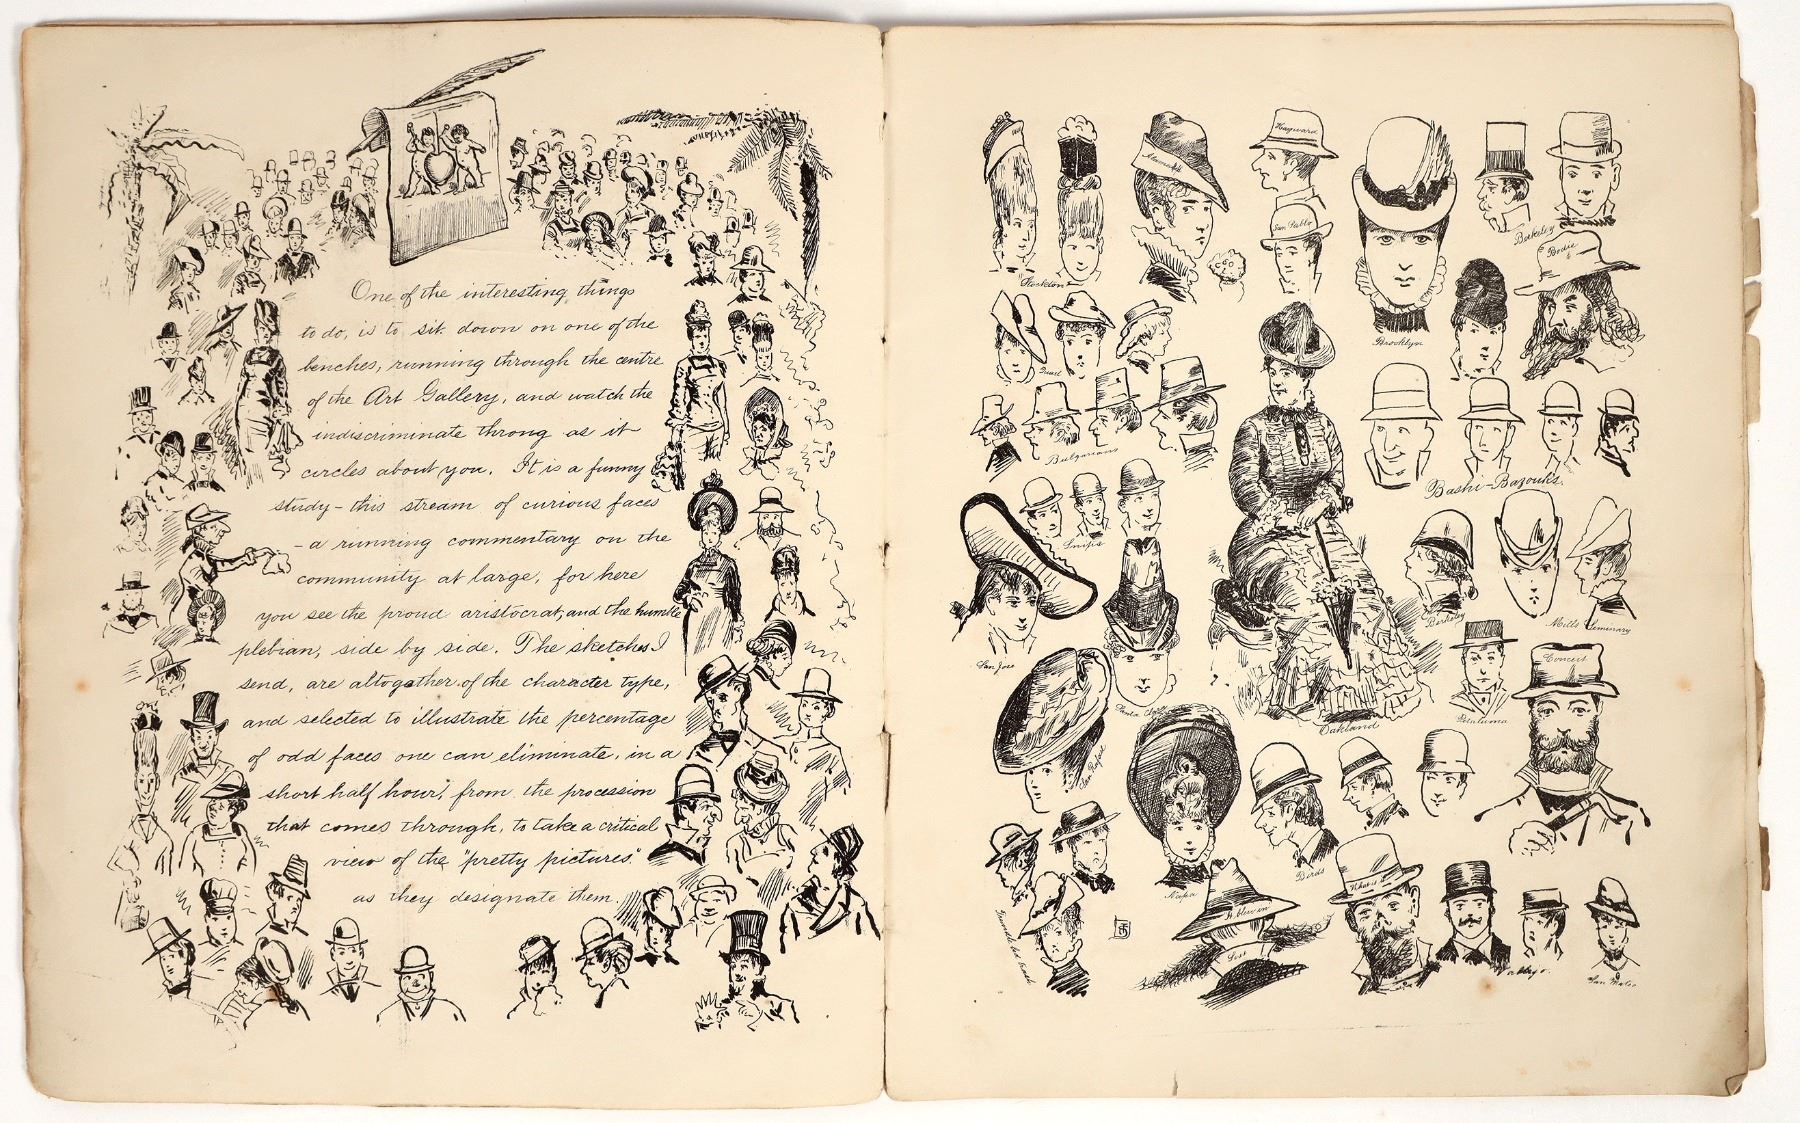 One of the interesting things
to do, is to sit down on one of the
benches, running through the centre
of the Art Gallery, and watch the
indiscriminate throng as it
circles about you. It is a funny
study - this stream of curious faces
- a running commentary on the
community at large, for here
you see the proud aristocrat, and the humble
plebian, side by side. The sketches I
send, are altogather of the character type,
and selected to illustrate the percentage
of odd faces one can eliminate, in a
short half hour, from the procession
that comes through, to take a critical
view of the "pretty pictures"
as they designate them.
Hayward
San Pablo
Berkeley
Bodie
Stockton
Brooklyn
Bulgarians
Bashi-Bazouks
Snips
Berkeley
Mills Seminary
San Jose
Concert
Petaluma
Oakland
San Rafael
Birds
Napa
What is it
Lost
San Mateo